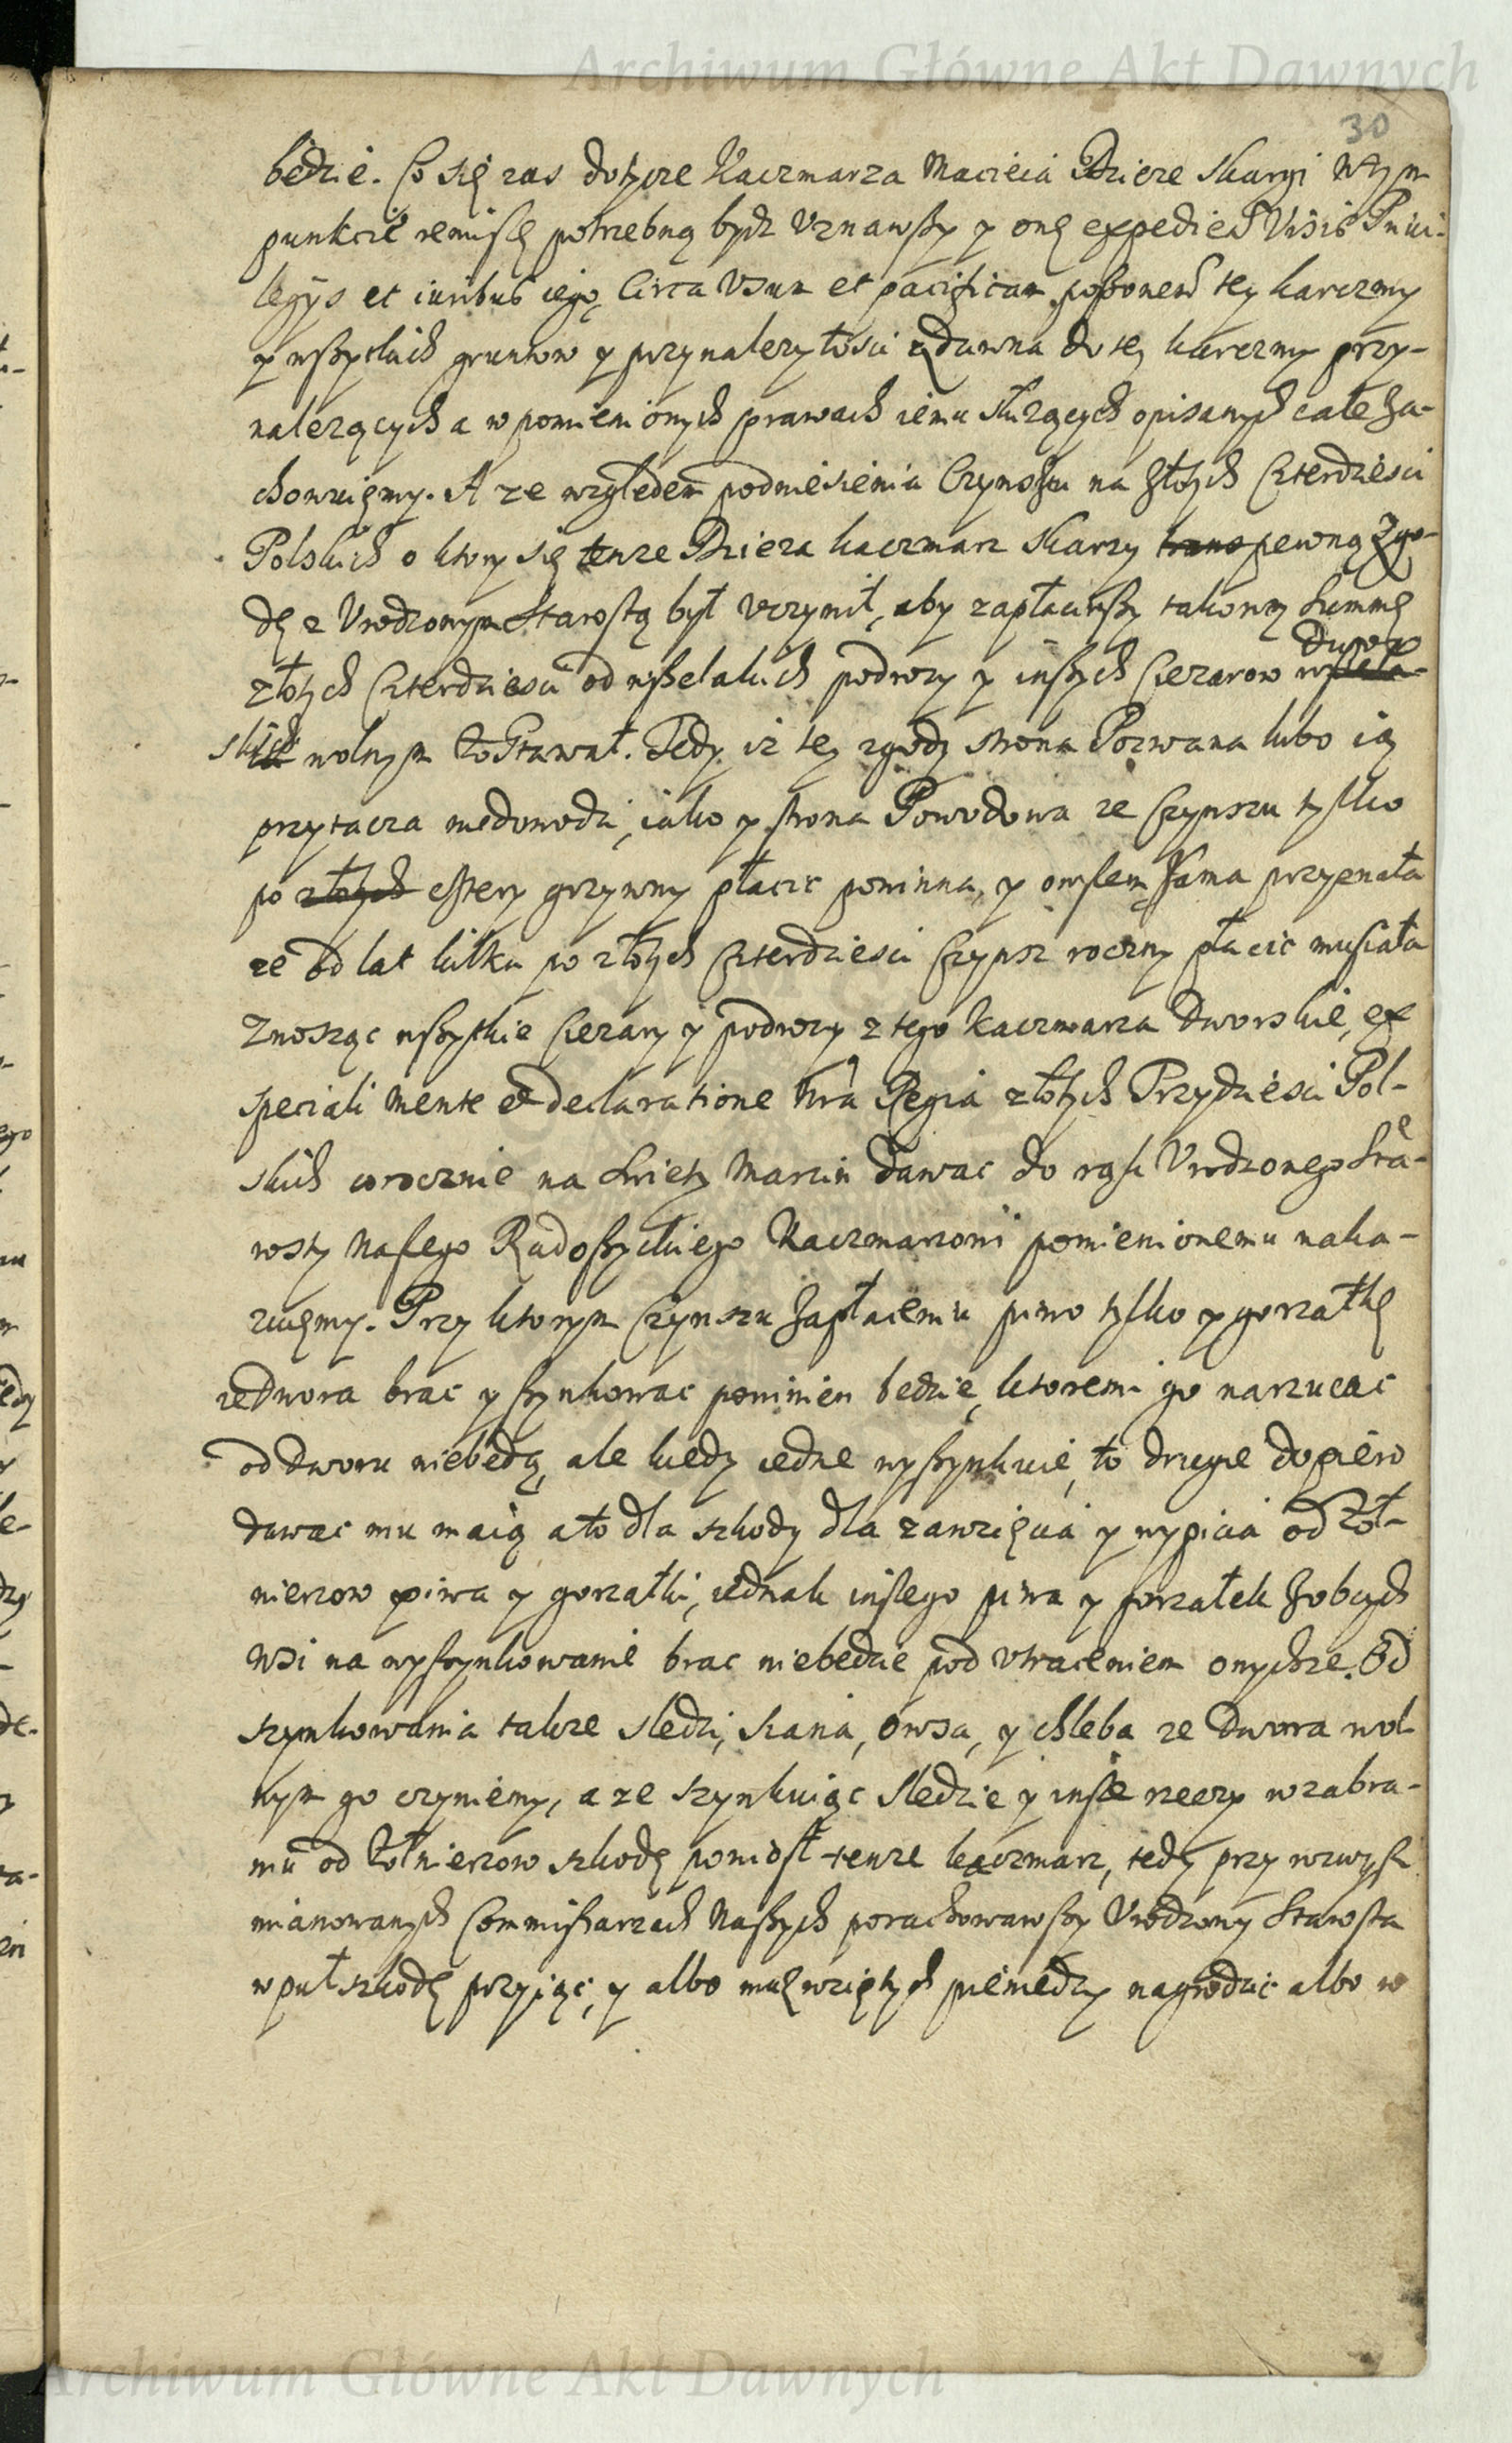 Archiwum Główne Akt Dawnych
30
będzie. Co się zas dotycze Kaczmarza Macieia Dzieze skargi w tym
punkcie remissę potrzebną bydz uznawszy y onę expedied Visis Priui-
legijs et iuribus iego, Circa Usum et pacificam possonem tey karczmy
y wszytkich gruntow y przynalezytosci zdawna do tey karczmy przy-
nalezących a w pomienionych prawach iemu słuzących opisanych całe za-
chowuięmy. A ze względem podniesienia Czynszu na złotych Czterdziesci
Polskich o ktory się tenze Dzieza kaczmarz skarzy pewną zgo-
dę z Urodzonym Starostą był uczynił, aby zapłaciwszy takową Summę
złotych Czterdziesci od wszelakich podwozy y inszych Ciezarow dwor-
skich wolnym zostawał. Tedy iz tey zgody strona Pozwana lubo ią
przytacza niedowodzi, iako y strona Powodowa ze Czynszu tylko
po złotych cztery grzywny płacic powinna, y owszem sama przyznała
ze od lat kilku po złotych Czterdziesci Czynsz roczny płacic musiała
znosząc wszytkie Ciezary y podwozy z tego kaczmarza dworskie, ex
speciali mente et declaratione Nra Regia złotych Trzydziesci Pol-
skich corocznie na Swięty Marcin dawac do rąk Urodzonego Sta-
rosty Naszego Radoszyckiego Kaczmarzowi pomienionemu naka-
zuięmy. Przy ktorym Czynszu zapłaceniu piwo tylko y gorzałkę
ze Dwora brac y szynkowac powinien będzie, ktoremi go narzucac
od dworu niebędą, ale kiedy iedne wyszynkuie, to drugie dopiero
dawac mu maią a to dla szkody dla zawzięcia y wypicia od zoł-
nierzow piwa y gorzałki, iednak inszego piwa y gorzałek z obcych
wsi na wyszynkowanie brac niebędzie pod utraceniem onychze. Od
szynkowania takze sledzi, siana, owsa, y chleba ze Dwora wol-
nym go czyniemy, a ze szynkuiąc sledzie y insze rzeczy w zabra-
niu od zołnierzow szkodę poniosł tenze kaczmarz, tedy przy wzwysz
mianowanych Commissarzach Naszych porachowawszy Urodzony Starosta
w puł szkodę przyiąc, y albo mu z wziętych pieniedzy nagrodzic albo w
Archiwum Główne Akt Dawnych